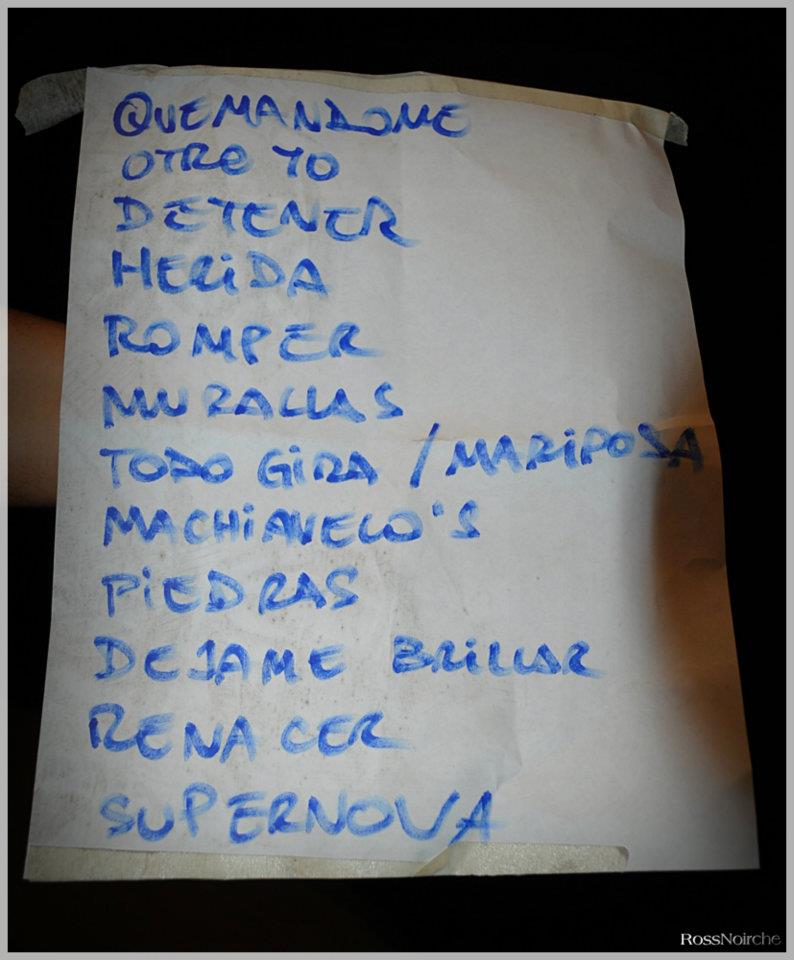 QUEMANDOME
OTRO YO
DETENER
HERIDA
ROMPER
MURALLAS
TODO GIRA / MARIPOSA
MACHIAVELO'S
PIEDRAS
DEJAME BRILLAR
RENACER
SUPERNOVA
RossNoirche